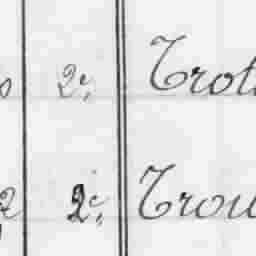 2e, Trot
2e, Trou